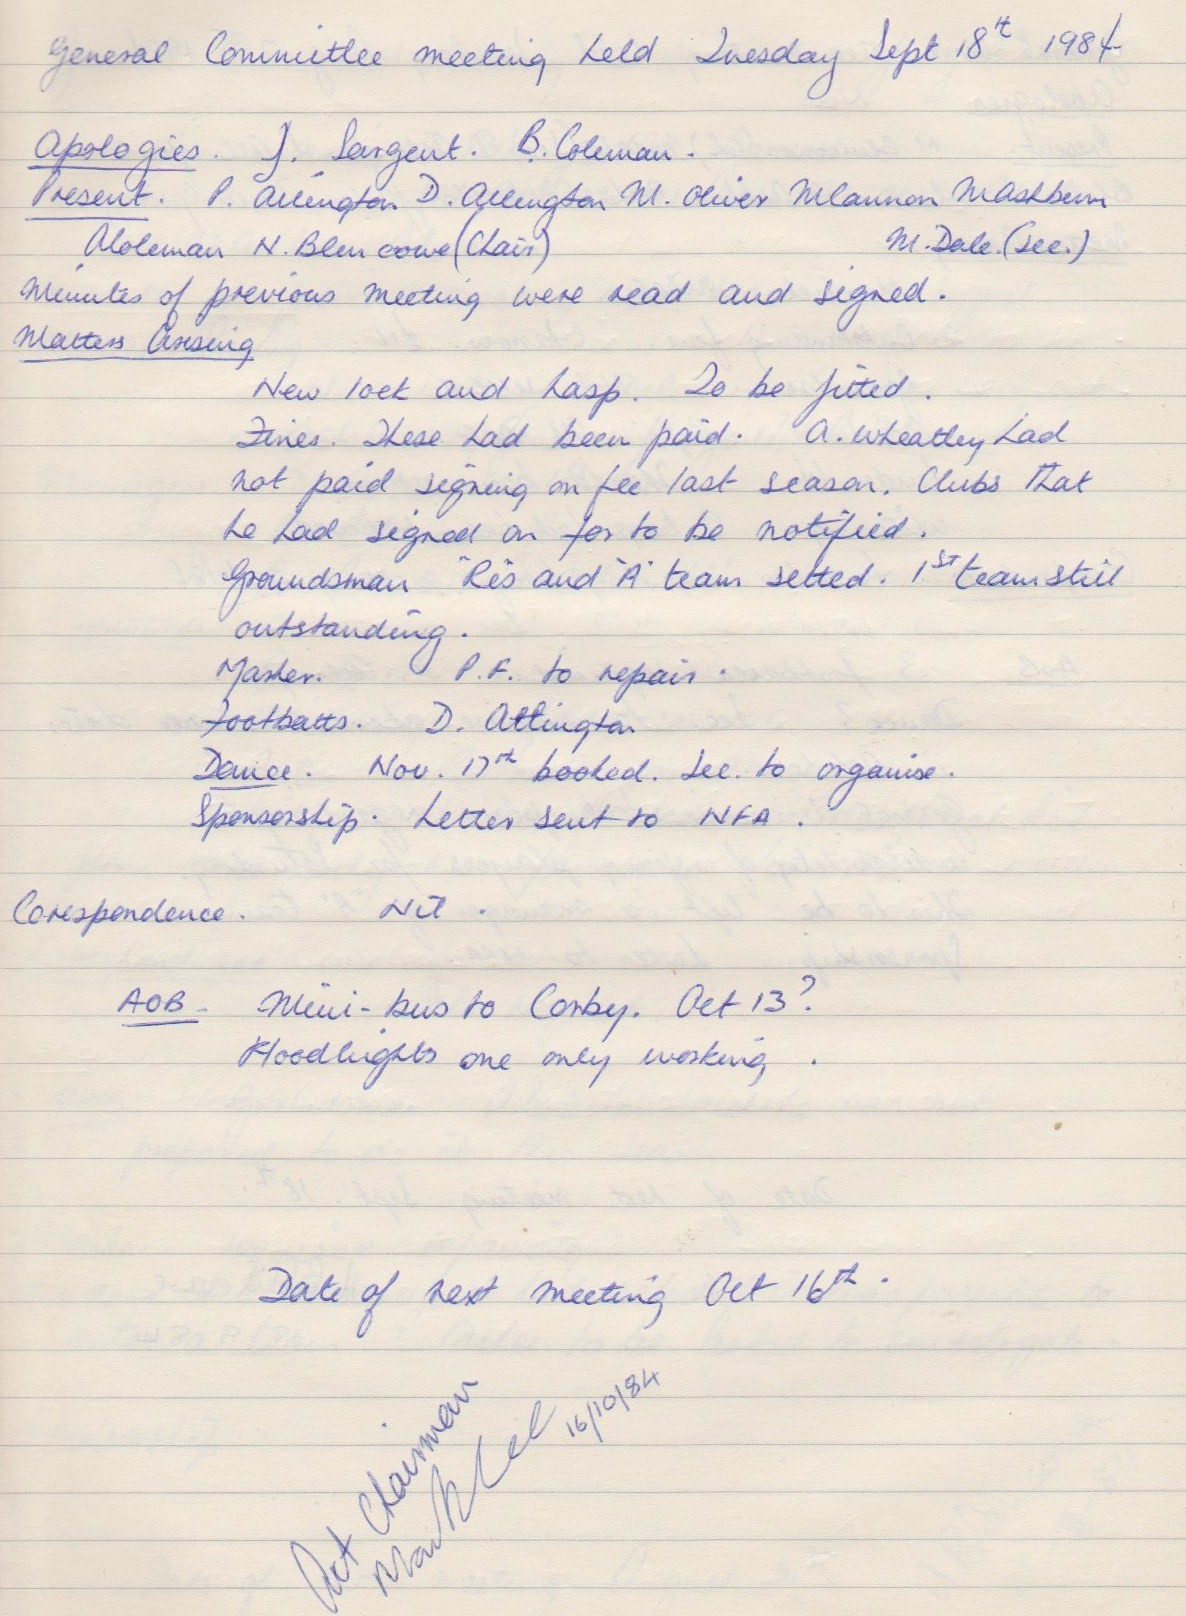 General Committee meeting held Tuesday Sept 18th 1984
Apologies. J. Sargent. B. Coleman.
Present. P. Allington D. Allington M. Oliver M Lannon M Ashburn
A Coleman N. Blencowe (Chair) M. Dale. (Sec.)
Minutes of previous meeting were read and signed.
Matters Arising
New lock and hasp. To be fitted.
Fines. These had been paid. A. Wheatley had
not paid signing on fee last season. Clubs that
he had signed on for to be notified.
Groundsman "Res and "A" team setted. 1ST team still
outstanding.
Marker. P.F. to repair.
Footballs. D. Allington
Dance. Nov. 17th booked. Sec. to organise.
Sponsorship. Letter sent to NFA.
Corespondence. Nil.
AOB - Mini-bus to Corby. Oct 13?
Floodlights one only working.
Date of next meeting Oct 16th.
Act Chairman
16/10/84